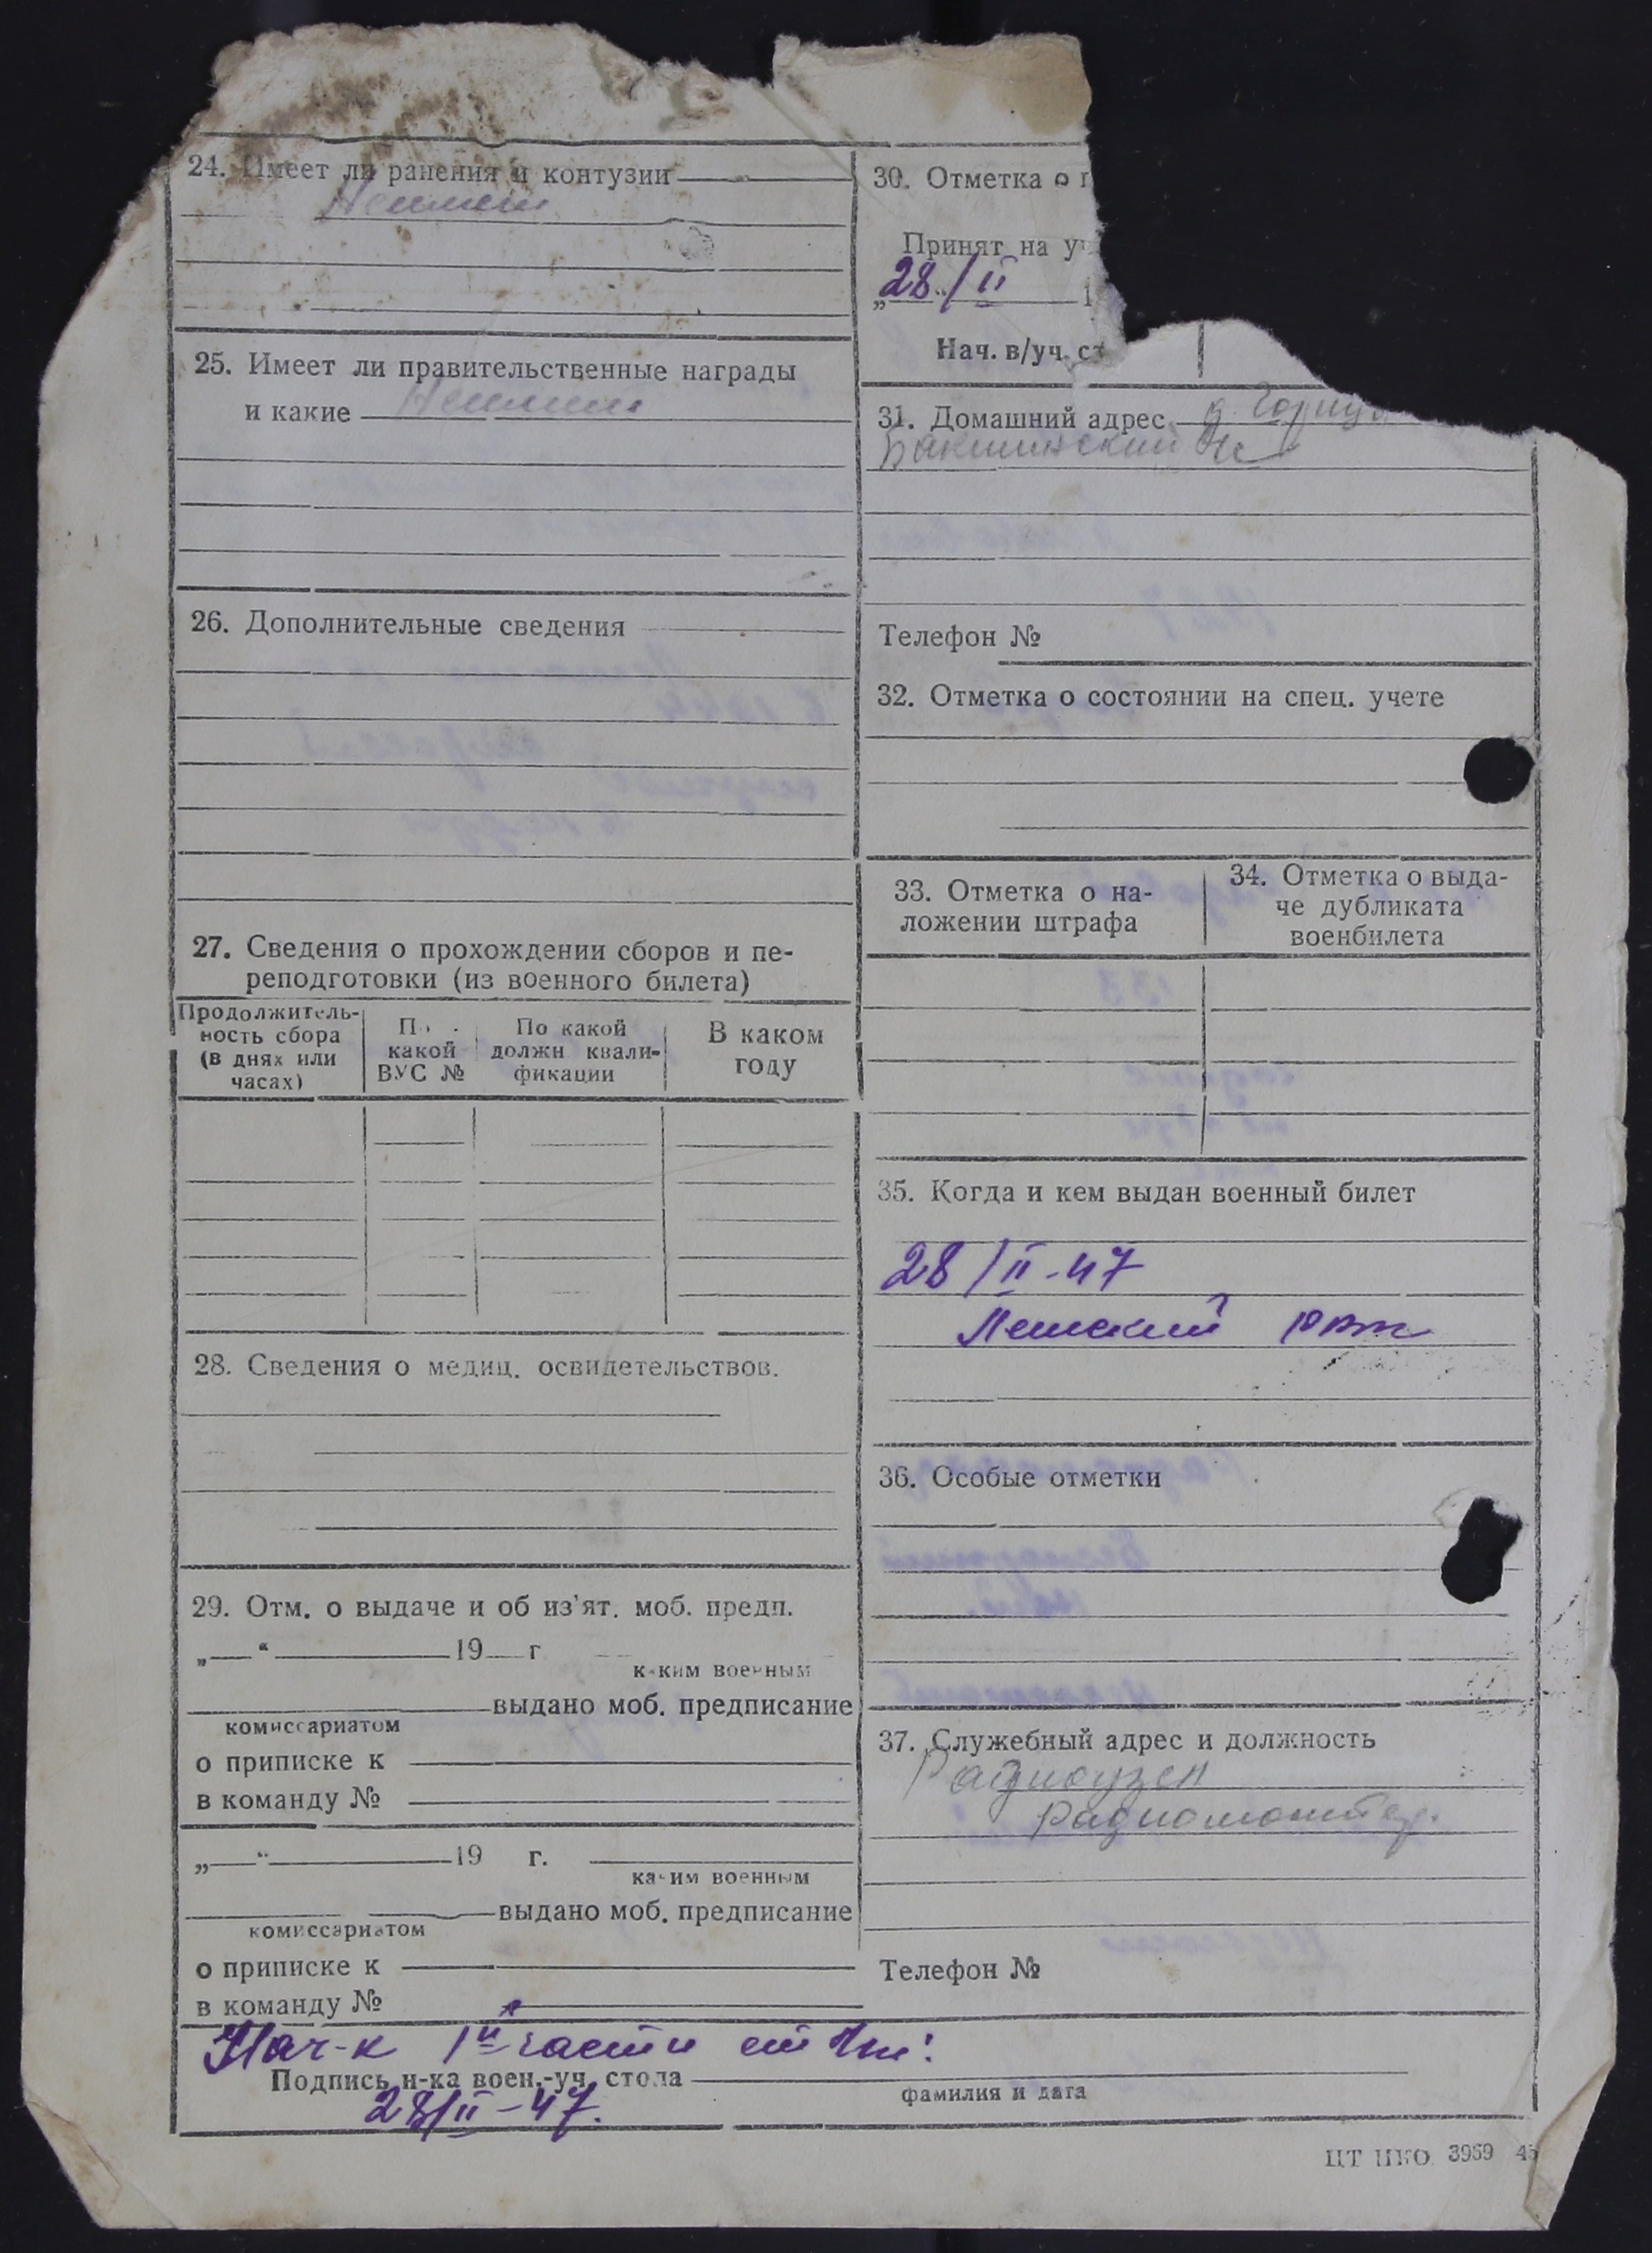 24. Имеет ли ранения и контузии
Не имеет
25. Имеет ли правительственные награды
и какие Не имеет
26. Дополнительные сведения
27. Сведения о прохождении сборов и пе-
реподготовки (из военного билета)
Продолжитель-
ность сбора
(в днях или
часах)
По
какой
ВУС №
По какой
должн квали-
фикации
В каком
году
28. Сведения о медиц. освидетельствов.
29. Отм. о выдаче и об из'ят. моб. предп.
„ “ 19 г
каким военным
выдано моб. предписание
комиссариатом
о приписке к
в команду №
„ “ 19 г.
каким военным
выдано моб. предписание
комиссариатом
о приписке к
в команду №
30. Отметка о
Принят на
„28“/II 1
Нач. в/уч. ст
31. Домашний адрес д.
Телефон №
32. Отметка о состоянии на спец. учете
33. Отметка о на-
ложении штрафа
34. Отметка о выда-
че дубликата
военбилета
35. Когда и кем выдан военный билет
28/II-47
36. Особые отметки
37. Служебный адрес и должность
Радиоузел
радиомонтер.
Телефон №
Нач-к 1й части
Подпись н-ка воен.-уч. стола
28/II-47.
фамилия и дата
ЦТ НКО 3959 45